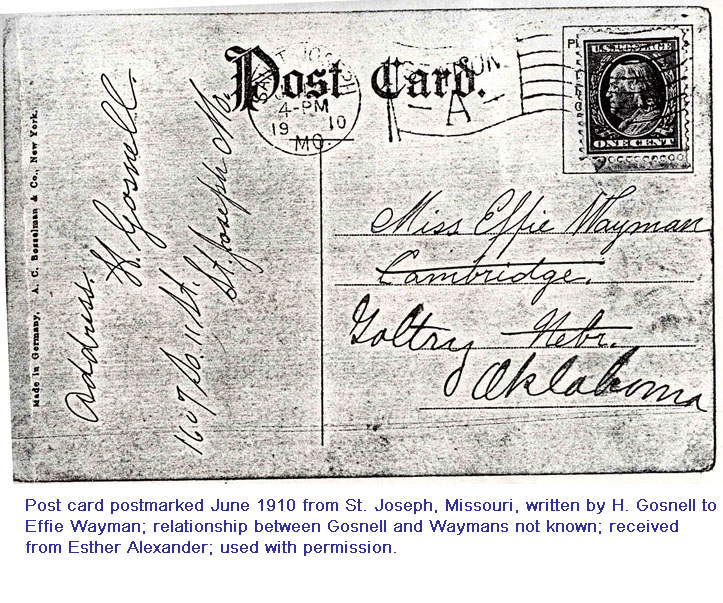 Post Card.
SAINT JOSEPH
4-PM
19 10
MO.
A
U.S. POSTAGE
ONE CENT
Made in Germany. A. C. Bosselman & Co., New York.
Address. H. Gosnell.
1607 So. 11 St.
St. Joseph Mo.
Miss Effie Wayman
Cambridge,
Goltry Nebr.
Oklahoma
Post card postmarked June 1910 from St. Joseph, Missouri, written by H. Gosnell to
Effie Wayman; relationship between Gosnell and Waymans not known; received
from Esther Alexander; used with permission.